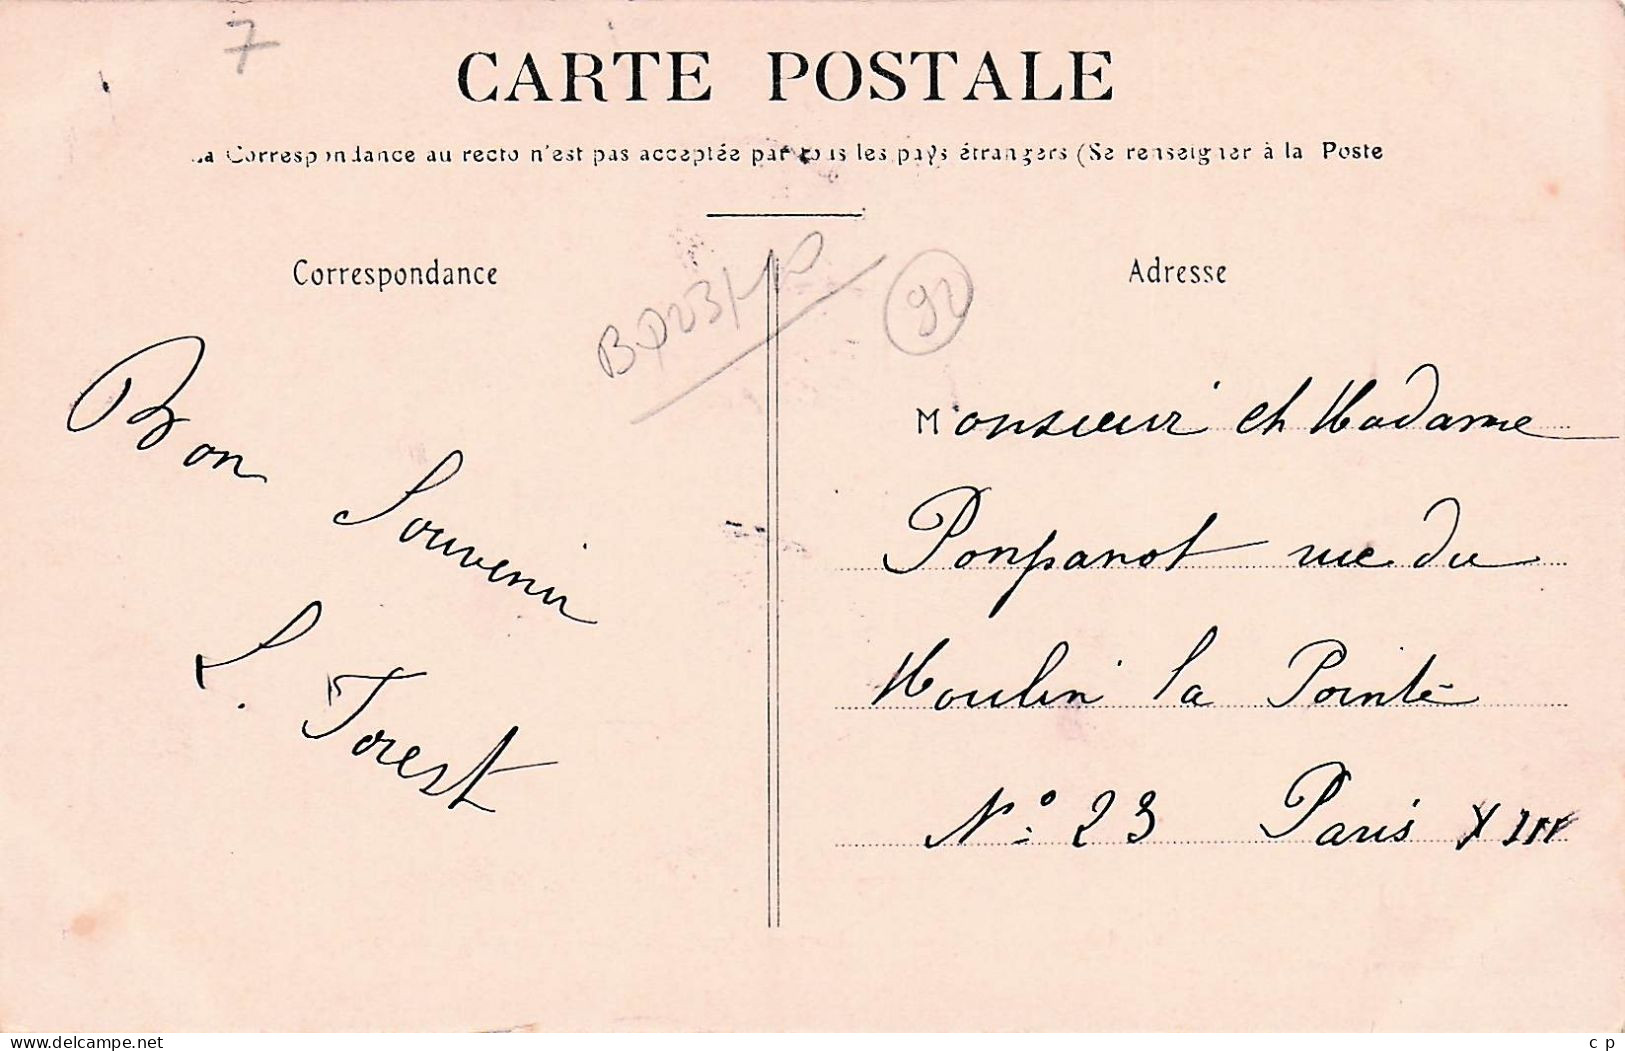 7
CARTE POSTALE
La Correspondance au recto n'est pas acceptée par tous les pays étrangers (Se renseigner à la Poste
Correspondance
Adresse
92
Bon
Souvenir
L. Forest
Monsieur et Madame
Ponpanot rue du
Moulin la Pointe
N° 23 Paris XIII
delcampe.net
c p